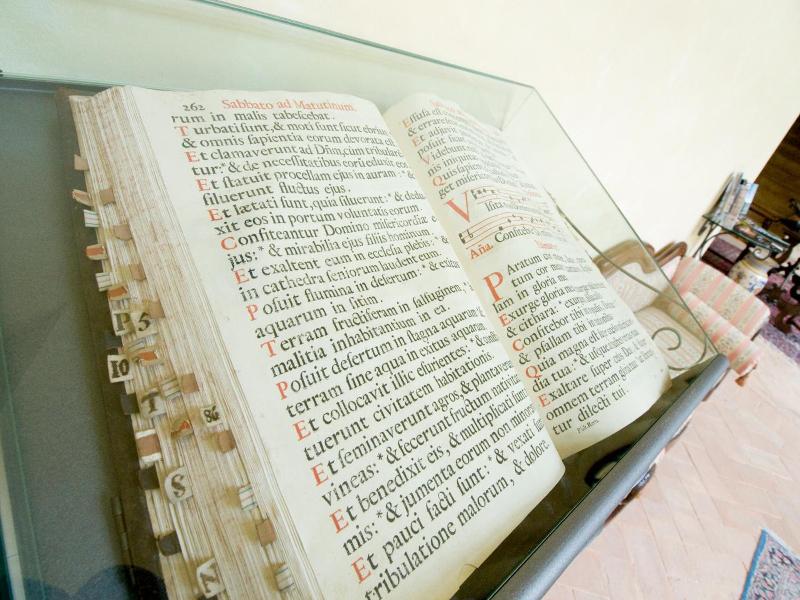 262 Sabbato ad Matutinum.
rum in malis tabescebat.
Turbati sunt, & moti sunt sicut ebrius
& omnis sapientia eorum devorata est.
Et clamaverunt ad Dñm, cum tribularen
tur: * & de necessitatibus eorũ eduxit eos
Et statuit procellam ejus in auram: * &
siluerunt fluctus ejus.
Et lætati sunt, quia siluerunt: * & dedu
xit eos in portum voluntatis eorum.
Confiteantur Domino misericordiæ e
jus: * & mirabilia ejus filiis hominum.
Et exaltent eum in ecclesia plebis: * &
in cathedra seniorum laudent eum.
Posuit flumina in desertum: * & exitus
aquarum in sitim.
Terram fructiferam in salsuginem, *
malitia inhabitantium in ea.
Posuit desertum in stagna aquarum:
terram sine aqua in exitus aquarum.
Et collocavit illic esurientes: * &
tuerunt civitatem habitationis.
Et seminaverunt agros, & plantaverunt
vineas: * & fecerunt fructum nativita
Et benedixit eis, & multiplicati sunt
mis: * & jumenta eorum non minora
Et pauci facti sunt: * & vexati sunt
tribulatione malorum, & dolore
Effusa est
& errare
Et adjuvit
posuit sicut
Videbunt
nis iniquitas
Quis sapiens
get misericordias
Visita
Aña. Confitebor
Paratum cor
tum cor meum
lam in gloria mea.
Exurge gloria mea
& cithara: * exurgam
Confitebor tibi
& psallam tibi
Quia magna est
dia tua: * & usque
Exaltare super
omnem terram gloria
tur dilecti tui.
P
5
IO
T
S